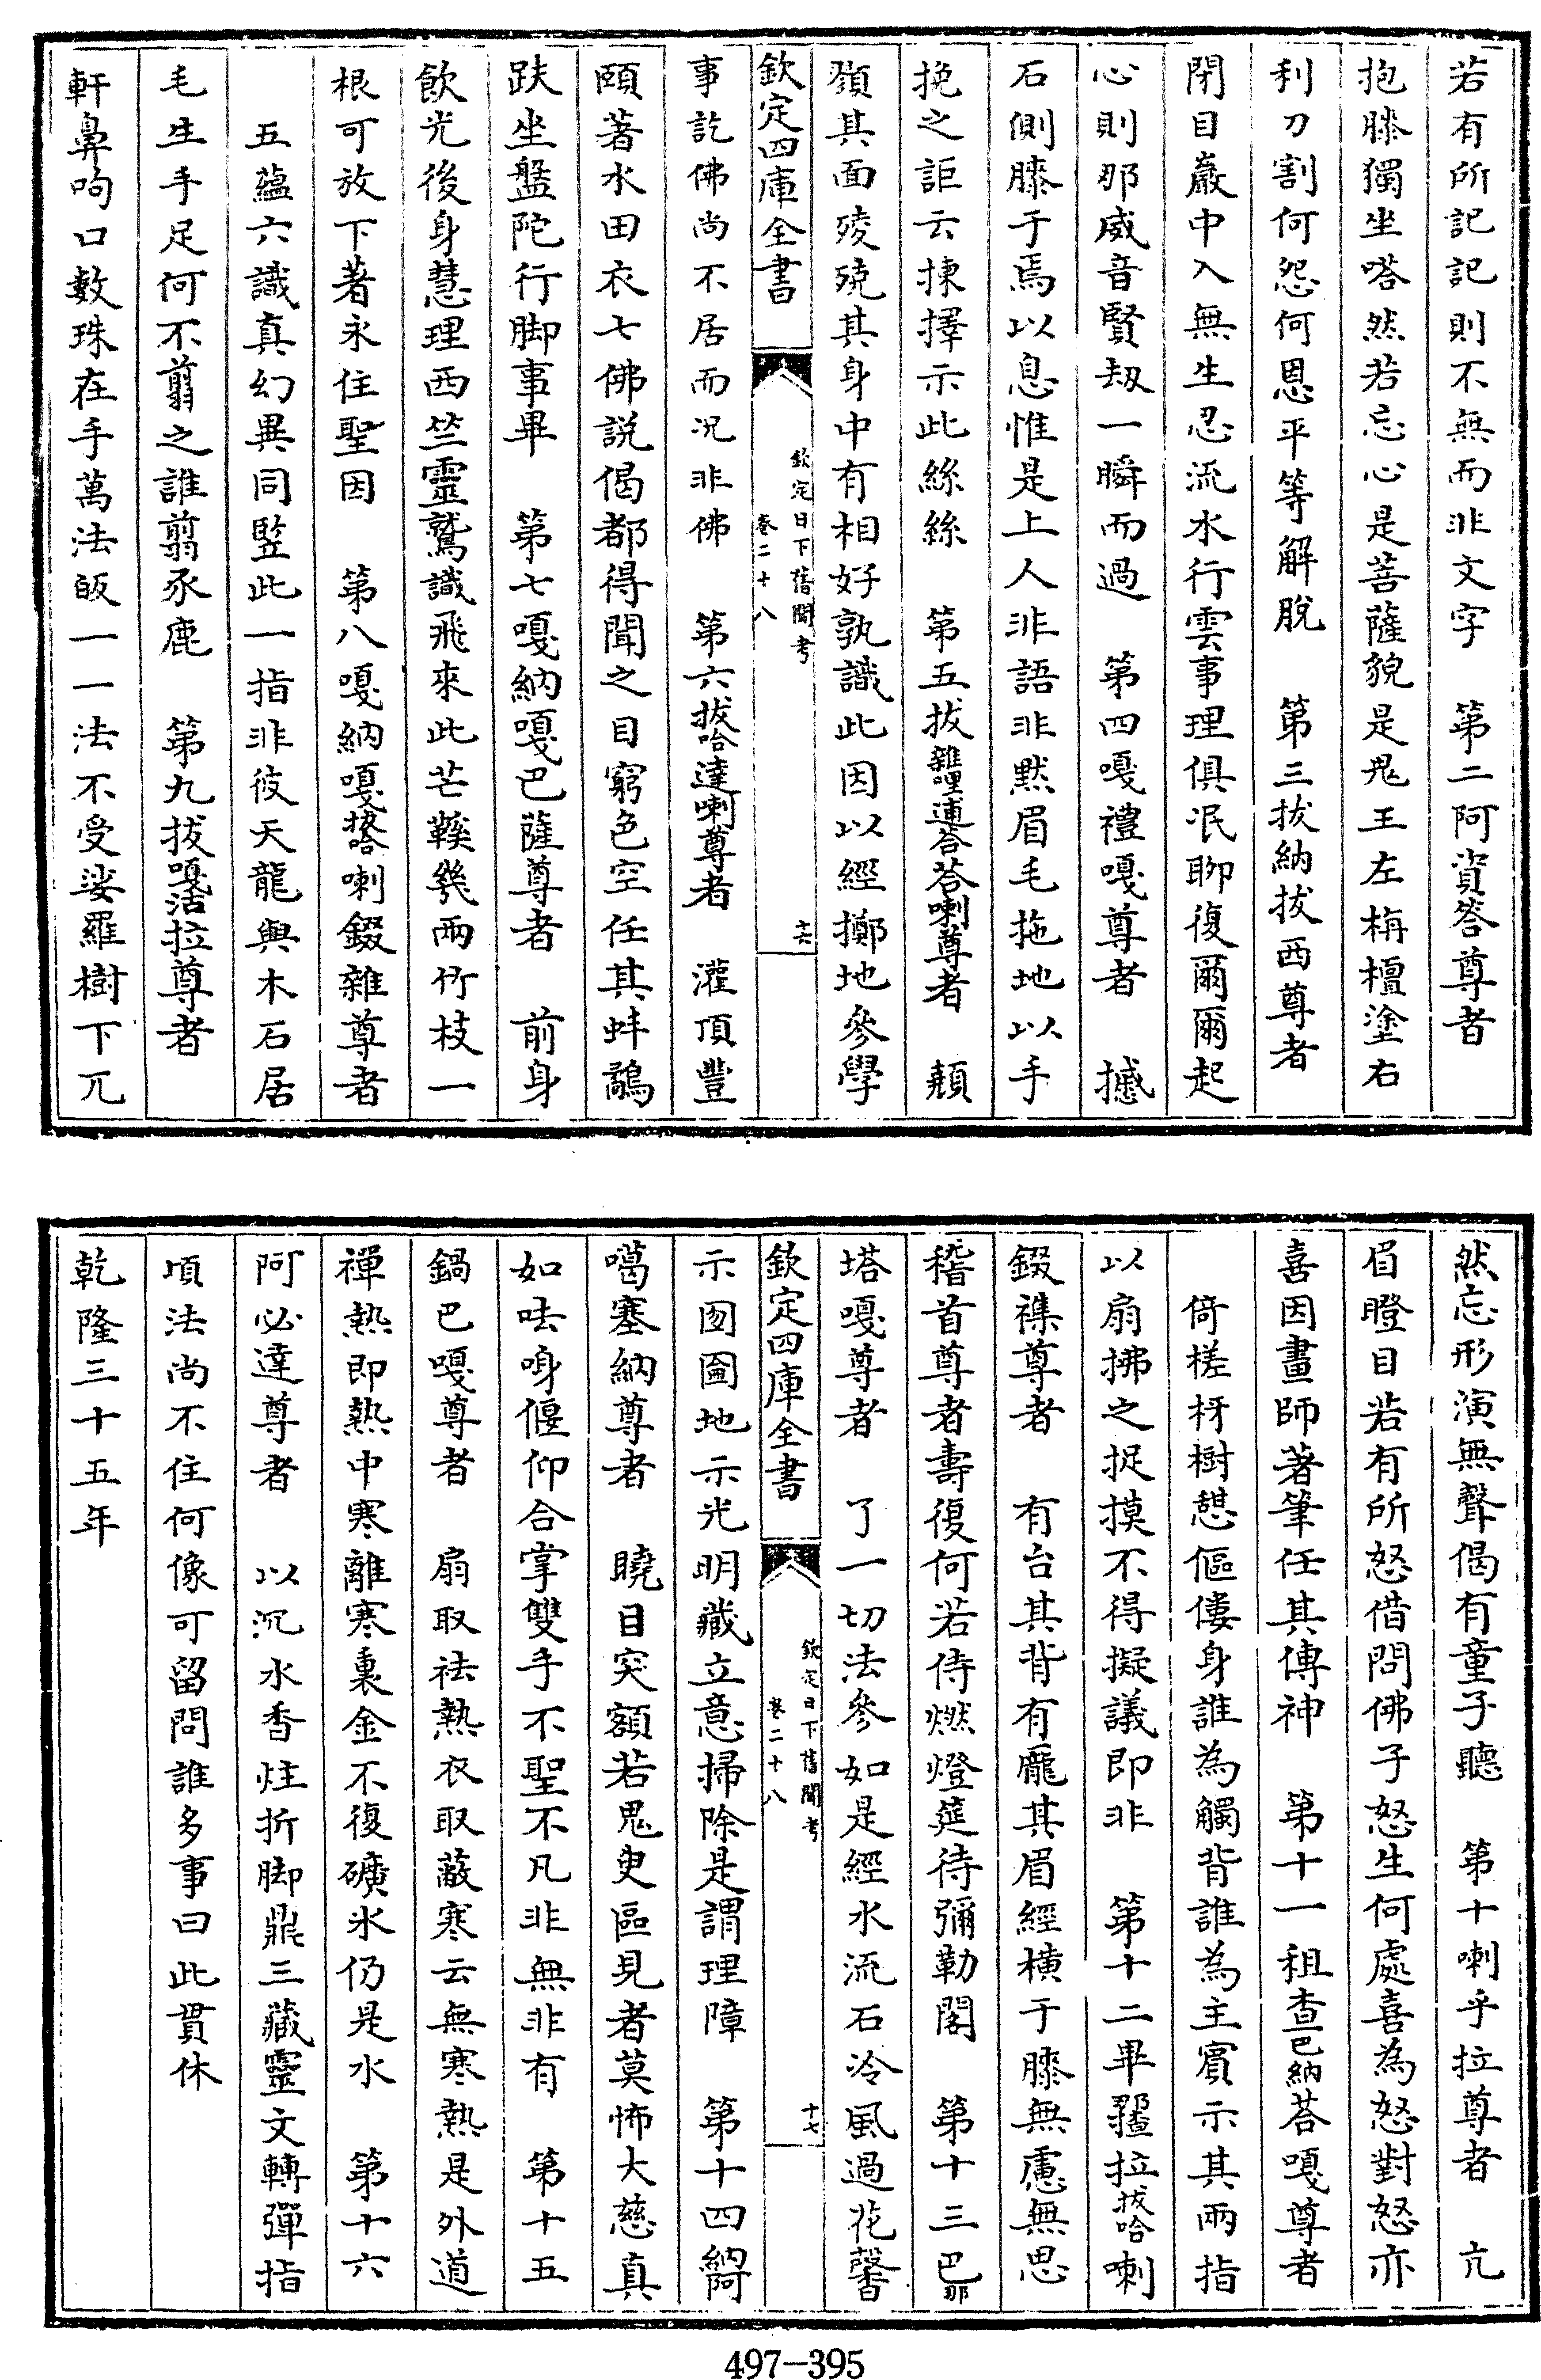 若有所記記則不無而非文字　第二阿資答尊者
抱膝獨坐嗒然若忘心是菩薩貌是鬼王左栴檀塗右
利刀割何怨何恩平等解脫　第三拔納拔西尊者
閉目巖中入無生忍流水行雲事理俱泯聊復爾爾起
心則那威音賢刼一瞬而過　第四嘎禮嘎尊者　撼
石側膝于焉以息惟是上人非語非黙眉毛拖地以手
挽之詎云揀擇示此絲絲　第五拔雜哩逋答荅喇尊者　頳
顙其面㱥殑其身中有相好孰識此因以經擲地參學
欽定四庫全書
欽定日下舊聞考
卷二十八
十六
事訖佛尚不居而况非佛　第六拔哈達喇尊者　灌頂豐
頤著水田衣七佛説偈都得聞之目窮色空任其蚌鷸
趺坐盤陀行脚事畢　第七嘎納嘎巴薩尊者　前身
飲光後身慧理西竺靈鷲識飛來此芒鞵幾兩竹枝一
根可放下著永住聖因　第八嘎納嘎拔哈喇錣雜尊者
五蘊六識真幻異同竪此一指非彼天龍與木石居
毛生手足何不翦之誰翦豕鹿　第九拔嘎沽拉尊者
軒鼻呴口數珠在手萬法皈一一法不受娑羅樹下兀
然忘形演無聲偈有童子聽　第十喇乎拉尊者　亢
眉瞪目若有所怒借問佛子怒生何處喜為怒對怒亦
喜因畫師著筆任其傳神　第十一租查巴納荅嘎尊者
倚槎枒樹憇傴僂身誰為觸背誰為主賓示其兩指
以扇拂之捉摸不得擬議即非　第十二畢那楂拉拔哈喇
錣襍尊者　有台其背有龎其眉經横于膝無慮無思
稽首尊者壽復何若侍燃燈筵待彌勒閣　第十三巴那
塔嘎尊者　了一切法參如是經水流石冷風過花馨
欽定四庫全書
欽定日下舊聞考
卷二十八
十七
示囡圇地示光明藏立意掃除是謂理障　第十四納阿
噶塞納尊者　曉目突額若鬼臾區見者莫怖大慈真
如呿呬偃仰合掌雙手不聖不凡非無非有　第十五
鍋巴嘎尊者　扇取祛熱衣取蔽寒云無寒熱是外道
禪熱即熱中寒離寒裏金不復礦氷仍是水　第十六
阿必達尊者　以沉水香炷折脚鼎三藏靈文轉彈指
頃法尚不住何像可留問誰多事曰此貫休
乾隆三十五年
497—395